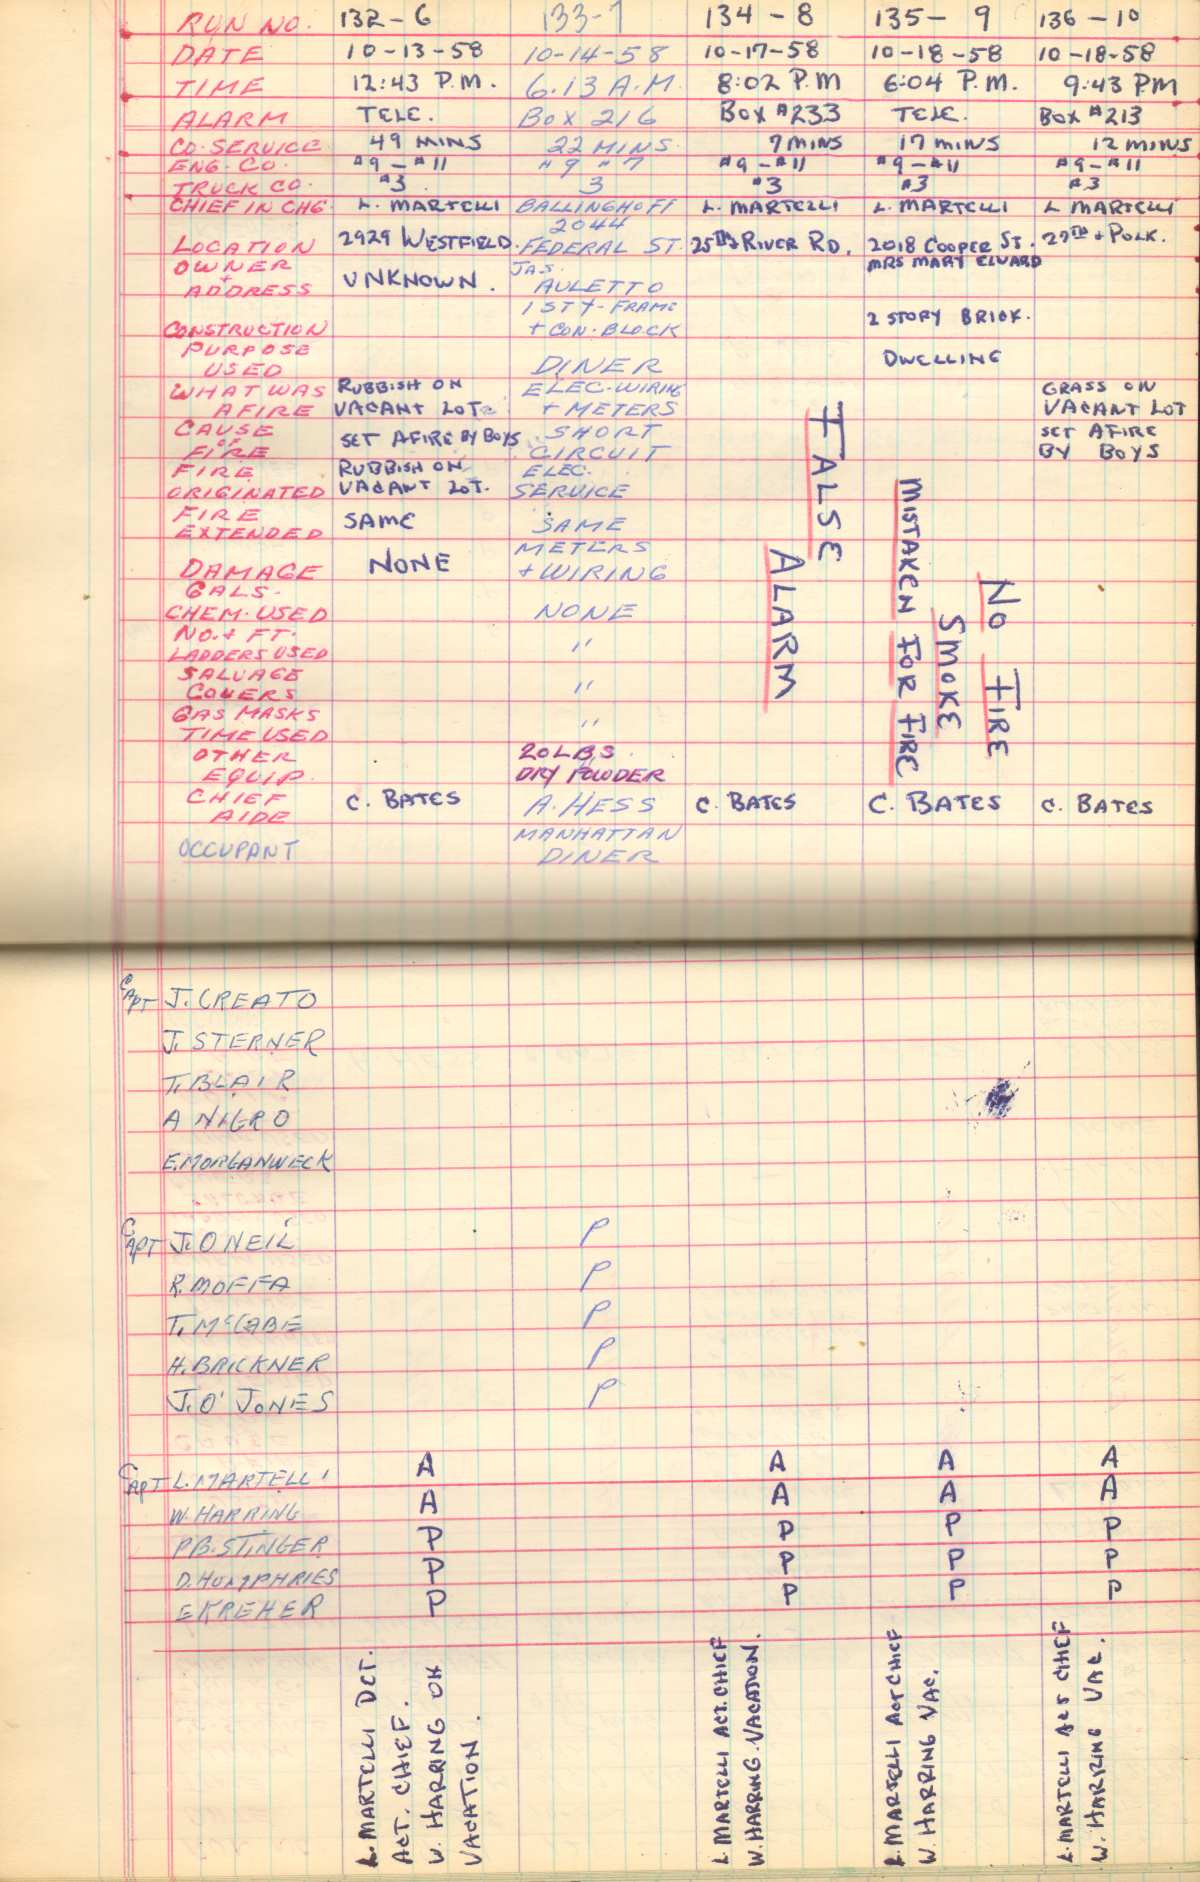 RUN NO. 132-6 133-7 134-8 135-9 136-10
DATE 10-13-58 10-14-58 10-17-58 10-18-58 10-18-58
TIME 12:43 P.M. 6.13 A.M. 8:02 P.M 6:04 P.M. 9:43 PM
ALARM TELE. BOX 216 BOX #233 TELE. BOX #213
CO. SERVICE 49 MINS 22 MINS. 7 MINS 17 MINS 12 MINS
ENG. CO. #9 - #11 #9 #7 #9 - #11 #9 - #11 #9 - #11
TRUCK CO. #3 3 #3 #3 #3
CHIEF IN CHG. L. MARTELLI BALLINGHOFF L. MARTELLI L. MARTELLI L MARTELLI
2044
LOCATION 2929 WESTFIELD. FEDERAL ST. 25TH + RIVER RD. 2018 COOPER ST. 27TH + POLK.
OWNER JAS. MRS MARY ELVARD
+
ADDRESS UNKNOWN. AULETTO
1 STY-FRAME 2 STORY BRICK.
CONSTRUCTION + CON. BLOCK
PURPOSE DWELLING
USED DINER
WHAT WAS RUBBISH ON ELEC-WIRING GRASS ON
AFIRE VACANT LOT. + METERS VACANT LOT
CAUSE SET AFIRE BY BOYS SHORT SET AFIRE
OF
FIRE CIRCUIT BY BOYS
FIRE RUBBISH ON ELEC.
ORIGINATED VACANT LOT. SERVICE
FIRE SAME SAME
EXTENDED
METERS
DAMAGE NONE + WIRING
GALS.
CHEM. USED NONE
NO. + FT. "
LADDERS USED
SALVAGE "
COVERS
GAS MASKS "
TIME USED
OTHER 20 LBS.
EQUIP. DRY POWDER
CHIEF C. BATES A. HESS C. BATES C. BATES C. BATES
AIDE
MANHATTAN
OCCUPANT DINER
FALSE
ALARM
NO FIRE
SMOKE
MISTAKEN FOR FIRE
CAPT J. CREATO
J. STERNER
T. BLAIR
A NIGRO
E. MORGANWECK
CAPT J. O NEIL P
R. MOFFA P
T. McCABE P
H. BRICKNER P
J. O' JONES P
CAPT L. MARTELLI A A A A
W. HARRING A A A A
P.B. STINGER P P P P
D. HUMPHRIES P P P P
E KREHER P P P P
L. MARTELLI DET.
ACT. CHIEF.
W. HARRING ON
VACATION.
L. MARTELLI ACT. CHIEF
W. HARRING. VACATION.
L. MARTELLI ACT CHIEF
W HARRING VAC.
L. MARTELLI ACT CHIEF
W. HARRING VAC.